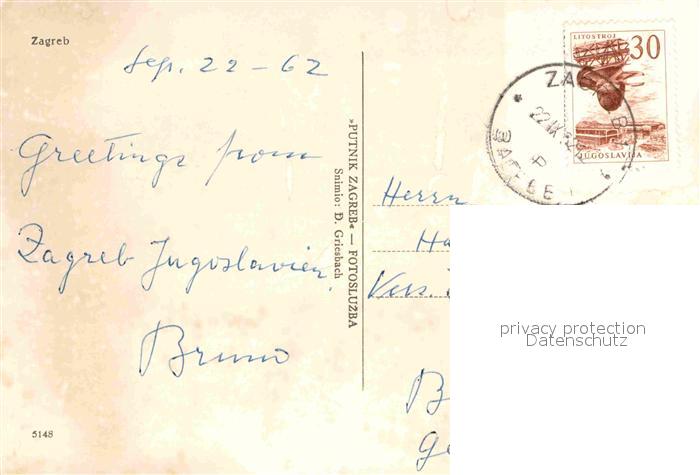 Zagreb
Sep. 22 - 62
Greetings from
Zagreb Jugoslavien.
Bruno
5148
»PUTNIK ZAGREB« — FOTOSLUŽBA
Snimio: Đ. Griesbach
LITOSTROJ
30
JUGOSLAVIJA
Herrn
Ha
Vers.
B
Ge
privacy protection
Datenschutz